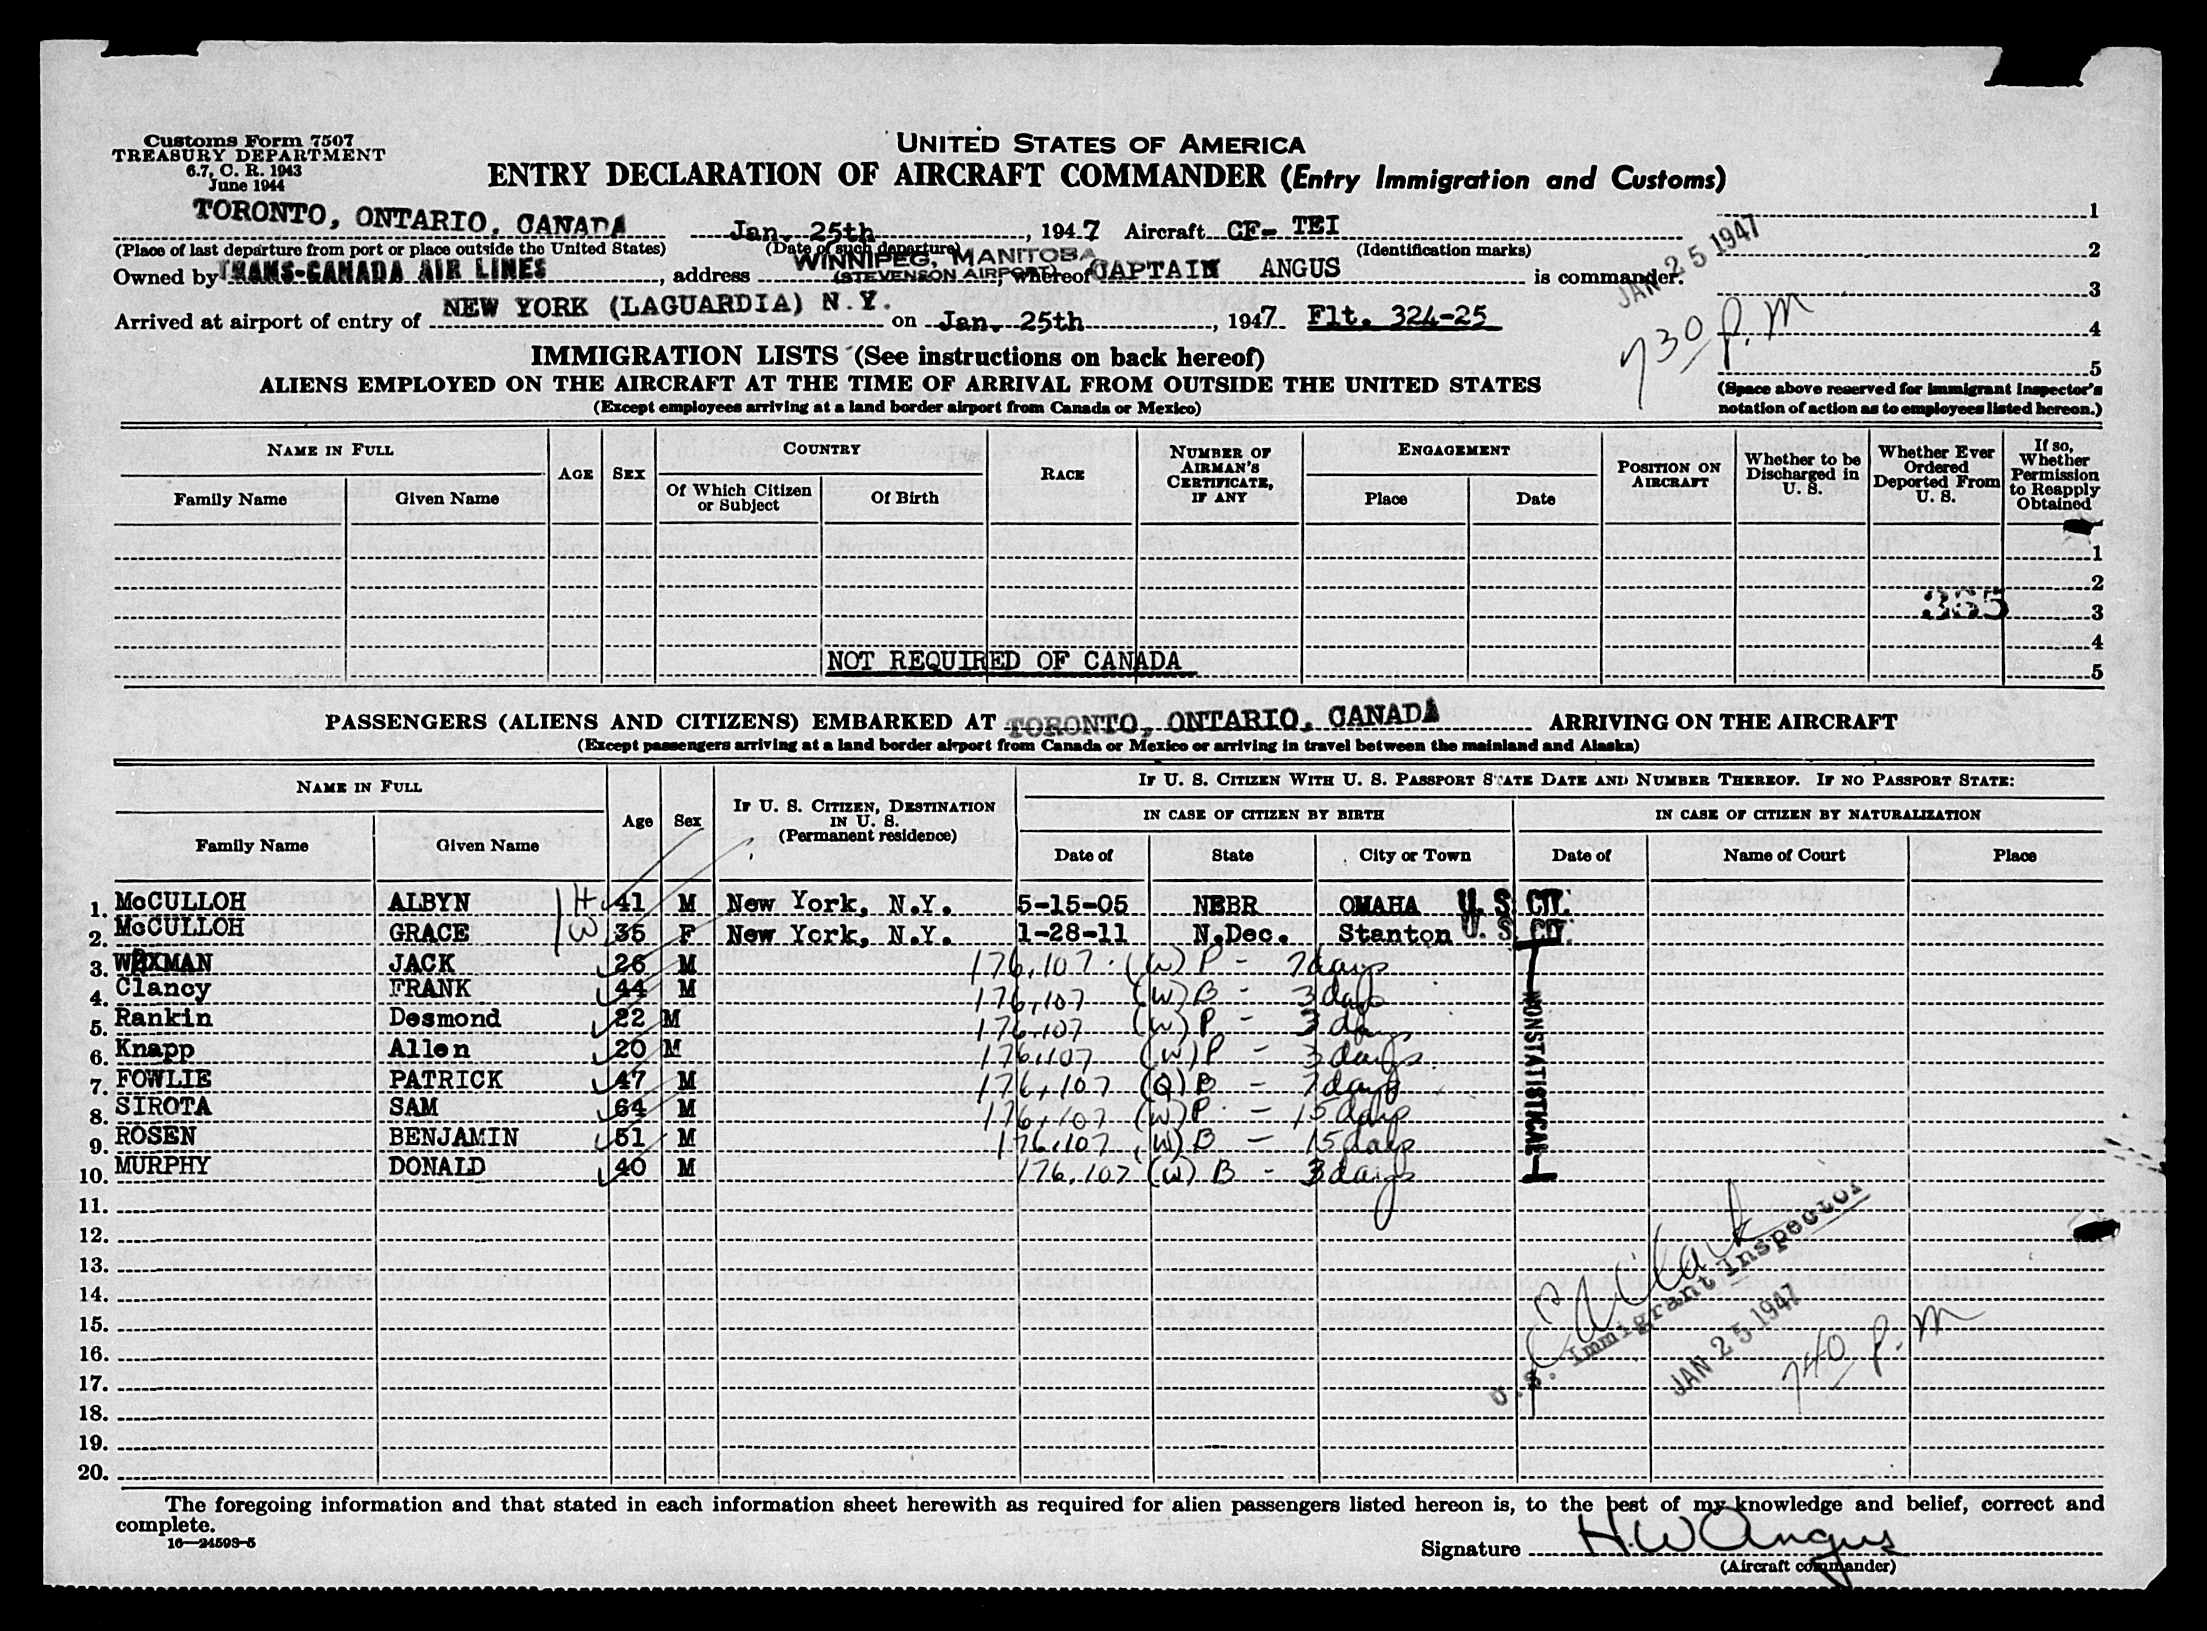 Customs Form 7507
TREASURY DEPARTMENT
6.7, C. R. 1943
June 1944
UNITED STATES OF AMERICA
ENTRY DECLARATION OF AIRCRAFT COMMANDER (Entry Immigration and Customs)
TORONTO, ONTARIO, CANADA Jan. 25th, 1947 Aircraft CF- TEI 1
(Place of last departure from port or place outside the United States) (Date of such departure) (Identification marks) 2
JAN 25 1947
WINNIPEG, MANITOBA
Owned by TRANS-CANADA AIR LINES, address (STEVENSON AIRPORT), whereof CAPTAIN ANGUS is commander. 3
Arrived at airport of entry of NEW YORK (LAGUARDIA) N.Y. on Jan. 25th, 1947 Flt. 324-25 4
730 P.M
5
IMMIGRATION LISTS (See instructions on back hereof)
ALIENS EMPLOYED ON THE AIRCRAFT AT THE TIME OF ARRIVAL FROM OUTSIDE THE UNITED STATES
(Except employees arriving at a land border airport from Canada or Mexico)
(Space above reserved for immigrant inspector's
notation of action as to employees listed hereon.)
NAME IN FULL AGE SEX COUNTRY RACE NUMBER OF AIRMAN'S CERTIFICATE, IF ANY ENGAGEMENT POSITION ON AIRCRAFT Whether to be Discharged in U. S. Whether Ever Ordered Deported From U. S. If so, Whether Permission to Reapply Obtained
Family Name Given Name Of Which Citizen or Subject Of Birth Place Date
1
2
365 3
4
NOT REQUIRED OF CANADA 5
PASSENGERS (ALIENS AND CITIZENS) EMBARKED AT TORONTO, ONTARIO, CANADA ARRIVING ON THE AIRCRAFT
(Except passengers arriving at a land border airport from Canada or Mexico or arriving in travel between the mainland and Alaska)
NAME IN FULL Age Sex IF U. S. CITIZEN, DESTINATION IN U. S. (Permanent residence) IF U. S. CITIZEN WITH U. S. PASSPORT STATE DATE AND NUMBER THEREOF. IF NO PASSPORT STATE:
IN CASE OF CITIZEN BY BIRTH IN CASE OF CITIZEN BY NATURALIZATION
Family Name Given Name Date of State City or Town Date of Name of Court Place
1. McCULLOH ALBYN H 41 M New York, N.Y. 5-15-05 NEBR OMAHA U. S. CIT.
2. McCULLOH GRACE W 35 F New York, N.Y. 1-28-11 N.Dec. Stanton U. S. CIT.
3. WAXMAN JACK 26 M 176.107 (W) P - 7 days
4. Clancy FRANK 44 M 176.107 (W) B - 3 days
5. Rankin Desmond 22 M 176.107 (W) P - 3 days
6. Knapp Allen 20 M 176.107 (W) P - 3 days
7. FOWLIE PATRICK 47 M 176.107 (Q) B - 7 days
8. SIROTA SAM 64 M 176.107 (W) P - 15 days
9. ROSEN BENJAMIN 51 M 176.107 (W) B - 15 days
10. MURPHY DONALD 40 M 176.107 (W) B - 3 days
NONSTATISTICAL
11.
12.
13.
14.
15.
16.
17.
18.
19.
20.
U. S. Immigrant Inspector
JAN 25 1947
740 P.M
The foregoing information and that stated in each information sheet herewith as required for alien passengers listed hereon is, to the best of my knowledge and belief, correct and
complete.
16—24593-5
Signature H.W Angus
(Aircraft commander)